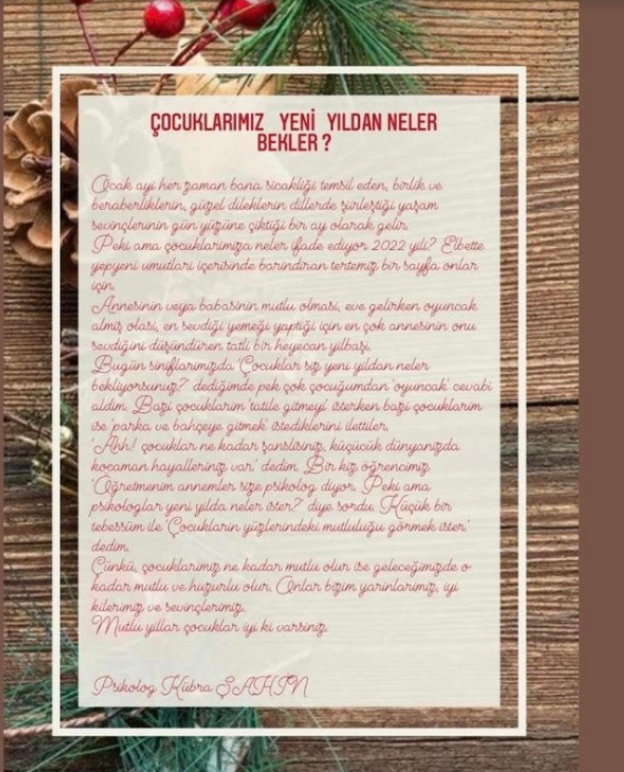 ÇOCUKLARIMIZ YENİ YILDAN NELER
BEKLER ?
Ocak ayi her zaman bana sicakliği temsil eden, birlik ve
beraberliklerin, güzel dileklerin dillerde şiirleştiği yaşam
sevinçlerinin gün yüzüne çiktiği bir ay olarak gelir.
Peki ama çocuklarimiza neler ifade ediyor 2022 yili? Elbette
yepyeni umutlari içerisinde barindiran tertemiz bir sayfa onlar
için.
Annesinin veya babasinin mutlu olmasi, eve gelirken oyuncak
almiş olasi, en sevdiği yemeği yaptiği için en çok annesinin onu
sevdiğini düşündüren tatli bir heyecan yilbaşi.
Bugün siniflarimizda 'Çocuklar siz yeni yildan neler
bekliyorsunuz?' dediğimde pek çok çocuğumdan 'oyuncak' cevabi
aldim. Bazi çocuklarim 'tatile gitmeyi' isterken bazi çocuklarim
ise 'parka ve bahçeye gitmek' istediklerini ilettiler.
'Ahh! çocuklar ne kadar şanslisiniz, küçücük dünyanizda
kocaman hayalleriniz var.' dedim. Bir kiz öğrencimiz
'Öğretmenim annemler size psikolog diyor. Peki ama
psikologlar yeni yilda neler ister?' diye sordu. Küçük bir
tebessüm ile 'Çocuklarin yüzlerindeki mutluluğu görmek ister.'
dedim.
Çünkü, çocuklarimiz ne kadar mutlu olur ise geleceğimizde o
kadar mutlu ve huzurlu olur. Onlar bizim yarinlarimiz, iyi
kilerimiz ve sevinçlerimiz.
Mutlu yillar çocuklar iyi ki varsiniz.
Psikolog Kübra ŞAHİN